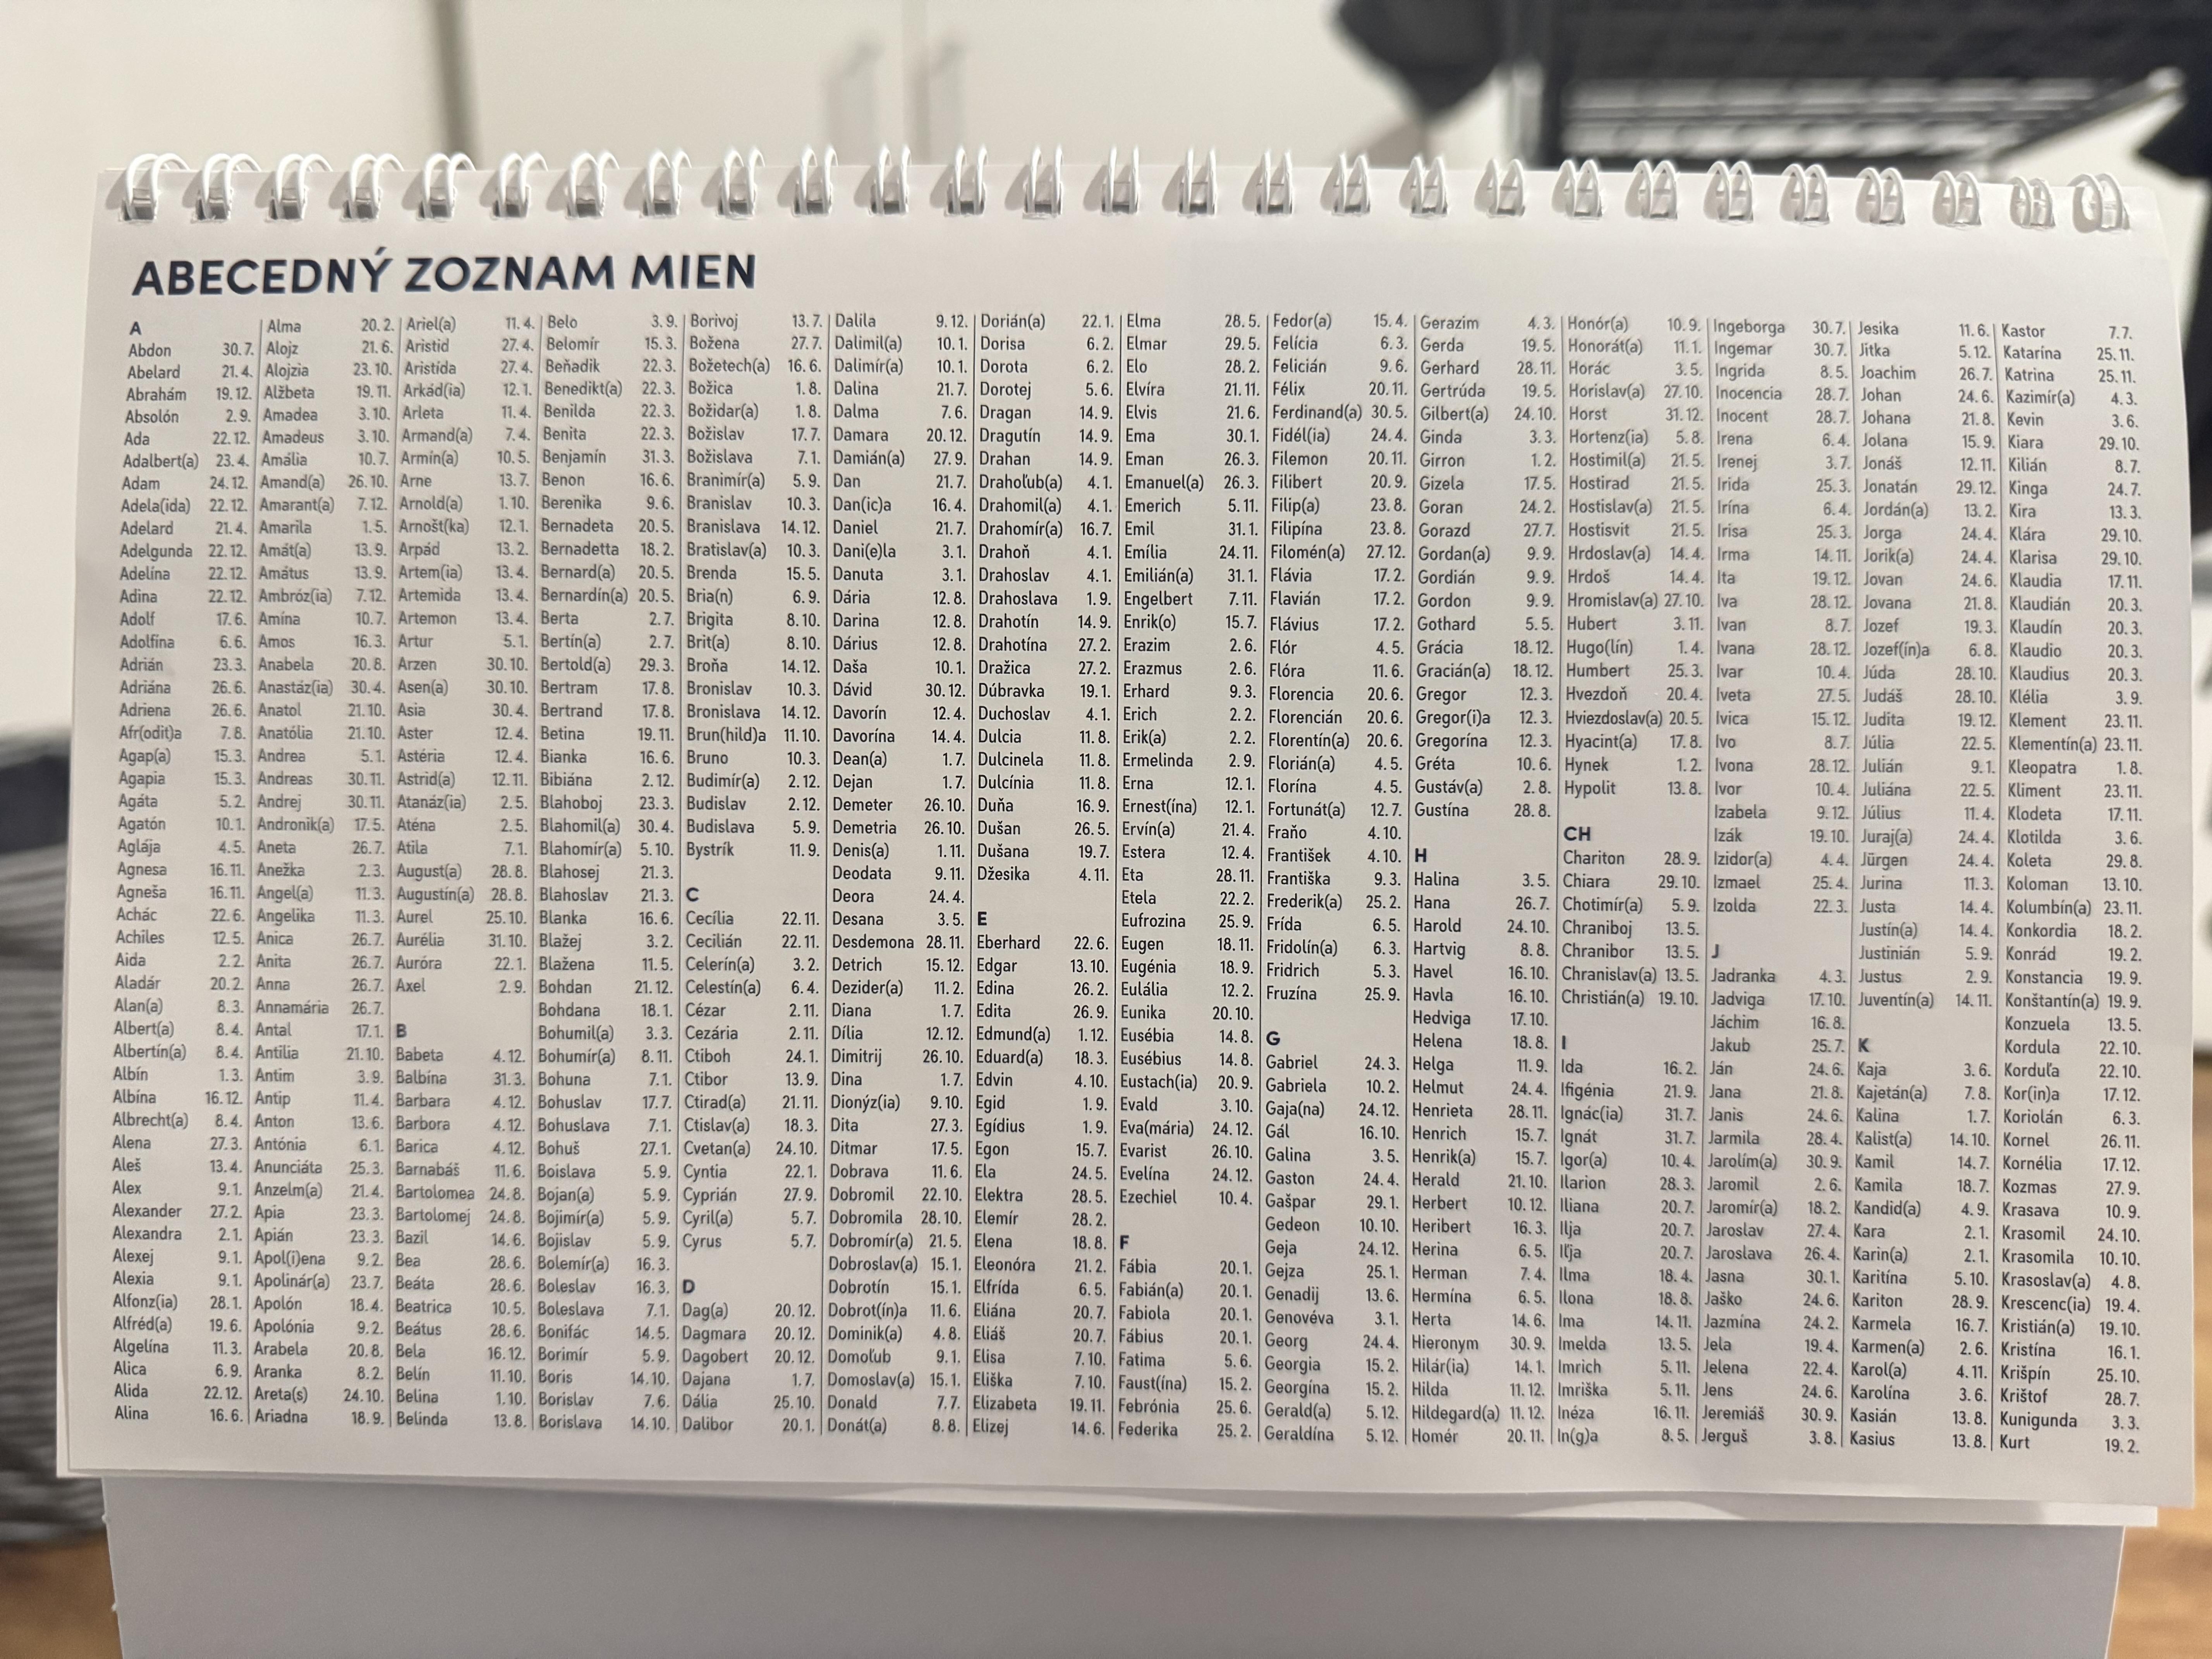 ABECEDNÝ ZOZNAM MIEN
A
Abdon 30. 7.
Abelard 21. 4.
Abrahám 19. 12.
Absolón 2. 9.
Ada 22. 12.
Adalbert(a) 23. 4.
Adam 24. 12.
Adela(ida) 22. 12.
Adelard 21. 4.
Adelgunda 22. 12.
Adelína 22. 12.
Adina 22. 12.
Adolf 17. 6.
Adolfína 6. 6.
Adrián 23. 3.
Adriána 26. 6.
Adriena 26. 6.
Afr(odit)a 7. 8.
Agap(a) 15. 3.
Agapia 15. 3.
Agáta 5. 2.
Agatón 10. 1.
Aglája 4. 5.
Agnesa 16. 11.
Agneša 16. 11.
Achác 22. 6.
Achiles 12. 5.
Aida 2. 2.
Aladár 20. 2.
Alan(a) 8. 3.
Albert(a) 8. 4.
Albertín(a) 8. 4.
Albín 1. 3.
Albína 16. 12.
Albrecht(a) 8. 4.
Alena 27. 3.
Aleš 13. 4.
Alex 9. 1.
Alexander 27. 2.
Alexandra 2. 1.
Alexej 9. 1.
Alexia 9. 1.
Alfonz(ia) 28. 1.
Alfréd(a) 19. 6.
Algelína 11. 3.
Alica 6. 9.
Alida 22. 12.
Alina 16. 6.
Alma 20. 2.
Alojz 21. 6.
Alojzia 23. 10.
Alžbeta 19. 11.
Amadea 3. 10.
Amadeus 3. 10.
Amália 10. 7.
Amand(a) 26. 10.
Amarant(a) 7. 12.
Amarila 1. 5.
Amát(a) 13. 9.
Amátus 13. 9.
Ambróz(ia) 7. 12.
Amína 10. 7.
Amos 16. 3.
Anabela 20. 8.
Anastáz(ia) 30. 4.
Anatol 21. 10.
Anatólia 21. 10.
Andrea 5. 1.
Andreas 30. 11.
Andrej 30. 11.
Andronik(a) 17. 5.
Aneta 26. 7.
Anežka 2. 3.
Angel(a) 11. 3.
Angelika 11. 3.
Anica 26. 7.
Anita 26. 7.
Anna 26. 7.
Annamária 26. 7.
Antal 17. 1.
Antilia 21. 10.
Antim 3. 9.
Antip 11. 4.
Anton 13. 6.
Antónia 6. 1.
Anunciáta 25. 3.
Anzelm(a) 21. 4.
Apia 23. 3.
Apián 23. 3.
Apol(i)ena 9. 2.
Apolinár(a) 23. 7.
Apolón 18. 4.
Apolónia 9. 2.
Arabela 20. 8.
Aranka 8. 2.
Areta(s) 24. 10.
Ariadna 18. 9.
Ariel(a) 11. 4.
Aristid 27. 4.
Aristída 27. 4.
Arkád(ia) 12. 1.
Arleta 11. 4.
Armand(a) 7. 4.
Armín(a) 10. 5.
Arne 13. 7.
Arnold(a) 1. 10.
Arnošt(ka) 12. 1.
Arpád 13. 2.
Artem(ia) 13. 4.
Artemida 13. 4.
Artemon 13. 4.
Artur 5. 1.
Arzen 30. 10.
Asen(a) 30. 10.
Asia 30. 4.
Aster 12. 4.
Astéria 12. 4.
Astrid(a) 12. 11.
Atanáz(ia) 2. 5.
Aténa 2. 5.
Atila 7. 1.
August(a) 28. 8.
Augustín(a) 28. 8.
Aurel 25. 10.
Aurélia 31. 10.
Auróra 22. 1.
Axel 2. 9.
B
Babeta 4. 12.
Balbína 31. 3.
Barbara 4. 12.
Barbora 4. 12.
Barica 4. 12.
Barnabáš 11. 6.
Bartolomea 24. 8.
Bartolomej 24. 8.
Bazil 14. 6.
Bea 28. 6.
Beáta 28. 6.
Beatrica 10. 5.
Beátus 28. 6.
Bela 16. 12.
Belín 11. 10.
Belina 1. 10.
Belinda 13. 8.
Belo 3. 9.
Belomír 15. 3.
Beňadik 22. 3.
Benedikt(a) 22. 3.
Benilda 22. 3.
Benita 22. 3.
Benjamín 31. 3.
Benon 16. 6.
Berenika 9. 6.
Bernadeta 20. 5.
Bernadetta 18. 2.
Bernard(a) 20. 5.
Bernardín(a) 20. 5.
Berta 2. 7.
Bertín(a) 2. 7.
Bertold(a) 29. 3.
Bertram 17. 8.
Bertrand 17. 8.
Betina 19. 11.
Bianka 16. 6.
Bibiána 2. 12.
Blahoboj 23. 3.
Blahomil(a) 30. 4.
Blahomír(a) 5. 10.
Blahosej 21. 3.
Blahoslav 21. 3.
Blanka 16. 6.
Blažej 3. 2.
Blažena 11. 5.
Bohdan 21. 12.
Bohdana 18. 1.
Bohumil(a) 3. 3.
Bohumír(a) 8. 11.
Bohuna 7. 1.
Bohuslav 17. 7.
Bohuslava 7. 1.
Bohuš 27. 1.
Boislava 5. 9.
Bojan(a) 5. 9.
Bojimír(a) 5. 9.
Bojislav 5. 9.
Bolemír(a) 16. 3.
Boleslav 16. 3.
Boleslava 7. 1.
Bonifác 14. 5.
Borimír 5. 9.
Boris 14. 10.
Borislav 7. 6.
Borislava 14. 10.
Borivoj 13. 7.
Božena 27. 7.
Božetech(a) 16. 6.
Božica 1. 8.
Božidar(a) 1. 8.
Božislav 17. 7.
Božislava 7. 1.
Branimír(a) 5. 9.
Branislav 10. 3.
Branislava 14. 12.
Bratislav(a) 10. 3.
Brenda 15. 5.
Bria(n) 6. 9.
Brigita 8. 10.
Brit(a) 8. 10.
Broňa 14. 12.
Bronislav 10. 3.
Bronislava 14. 12.
Brun(hild)a 11. 10.
Bruno 10. 3.
Budimír(a) 2. 12.
Budislav 2. 12.
Budislava 5. 9.
Bystrík 11. 9.
C
Cecília 22. 11.
Cecilián 22. 11.
Celerín(a) 3. 2.
Celestín(a) 6. 4.
Cézar 2. 11.
Cezária 2. 11.
Ctiboh 24. 1.
Ctibor 13. 9.
Ctirad(a) 21. 11.
Ctislav(a) 18. 3.
Cvetan(a) 24. 10.
Cyntia 22. 1.
Cyprián 27. 9.
Cyril(a) 5. 7.
Cyrus 5. 7.
D
Dag(a) 20. 12.
Dagmara 20. 12.
Dagobert 20. 12.
Dajana 1. 7.
Dália 25. 10.
Dalibor 20. 1.
Dalila 9. 12.
Dalimil(a) 10. 1.
Dalimír(a) 10. 1.
Dalina 21. 7.
Dalma 7. 6.
Damara 20. 12.
Damián(a) 27. 9.
Dan 21. 7.
Dan(ic)a 16. 4.
Daniel 21. 7.
Dani(e)la 3. 1.
Danuta 3. 1.
Dária 12. 8.
Darina 12. 8.
Dárius 12. 8.
Daša 10. 1.
Dávid 30. 12.
Davorín 12. 4.
Davorína 14. 4.
Dean(a) 1. 7.
Dejan 1. 7.
Demeter 26. 10.
Demetria 26. 10.
Denis(a) 1. 11.
Deodata 9. 11.
Deora 24. 4.
Desana 3. 5.
Desdemona 28. 11.
Detrich 15. 12.
Dezider(a) 11. 2.
Diana 1. 7.
Dília 12. 12.
Dimitrij 26. 10.
Dina 1. 7.
Dionýz(ia) 9. 10.
Dita 27. 3.
Ditmar 17. 5.
Dobrava 11. 6.
Dobromil 22. 10.
Dobromila 28. 10.
Dobromír(a) 21. 5.
Dobroslav(a) 15. 1.
Dobrotín 15. 1.
Dobrot(ín)a 11. 6.
Dominik(a) 4. 8.
Domoľub 9. 1.
Domoslav(a) 15. 1.
Donald 7. 7.
Donát(a) 8. 8.
Dorián(a) 22. 1.
Dorisa 6. 2.
Dorota 6. 2.
Dorotej 5. 6.
Dragan 14. 9.
Dragutín 14. 9.
Drahan 14. 9.
Drahoľub(a) 4. 1.
Drahomil(a) 4. 1.
Drahomír(a) 16. 7.
Drahoň 4. 1.
Drahoslav 4. 1.
Drahoslava 1. 9.
Drahotín 14. 9.
Drahotína 27. 2.
Dražica 27. 2.
Dúbravka 19. 1.
Duchoslav 4. 1.
Dulcia 11. 8.
Dulcinela 11. 8.
Dulcínia 11. 8.
Duňa 16. 9.
Dušan 26. 5.
Dušana 19. 7.
Džesika 4. 11.
E
Eberhard 22. 6.
Edgar 13. 10.
Edina 26. 2.
Edita 26. 9.
Edmund(a) 1. 12.
Eduard(a) 18. 3.
Edvin 4. 10.
Egid 1. 9.
Egídius 1. 9.
Egon 15. 7.
Ela 24. 5.
Elektra 28. 5.
Elemír 28. 2.
Elena 18. 8.
Eleonóra 21. 2.
Elfrída 6. 5.
Eliána 20. 7.
Eliáš 20. 7.
Elisa 7. 10.
Eliška 7. 10.
Elizabeta 19. 11.
Elizej 14. 6.
Elma 28. 5.
Elmar 29. 5.
Elo 28. 2.
Elvíra 21. 11.
Elvis 21. 6.
Ema 30. 1.
Eman 26. 3.
Emanuel(a) 26. 3.
Emerich 5. 11.
Emil 31. 1.
Emília 24. 11.
Emilián(a) 31. 1.
Engelbert 7. 11.
Enrik(o) 15. 7.
Erazim 2. 6.
Erazmus 2. 6.
Erhard 9. 3.
Erich 2. 2.
Erik(a) 2. 2.
Ermelinda 2. 9.
Erna 12. 1.
Ernest(ína) 12. 1.
Ervín(a) 21. 4.
Estera 12. 4.
Eta 28. 11.
Etela 22. 2.
Eufrozina 25. 9.
Eugen 18. 11.
Eugénia 18. 9.
Eulália 12. 2.
Eunika 20. 10.
Eusébia 14. 8.
Eusébius 14. 8.
Eustach(ia) 20. 9.
Evald 3. 10.
Eva(mária) 24. 12.
Evarist 26. 10.
Evelína 24. 12.
Ezechiel 10. 4.
F
Fábia 20. 1.
Fabián(a) 20. 1.
Fabiola 20. 1.
Fábius 20. 1.
Fatima 5. 6.
Faust(ína) 15. 2.
Febrónia 25. 6.
Federika 25. 2.
Fedor(a) 15. 4.
Felícia 6. 3.
Felicián 9. 6.
Félix 20. 11.
Ferdinand(a) 30. 5.
Fidél(ia) 24. 4.
Filemon 20. 11.
Filibert 20. 9.
Filip(a) 23. 8.
Filipína 23. 8.
Filomén(a) 27. 12.
Flávia 17. 2.
Flavián 17. 2.
Flávius 17. 2.
Flór 4. 5.
Flóra 11. 6.
Florencia 20. 6.
Florencián 20. 6.
Florentín(a) 20. 6.
Florián(a) 4. 5.
Florína 4. 5.
Fortunát(a) 12. 7.
Fraňo 4. 10.
František 4. 10.
Františka 9. 3.
Frederik(a) 25. 2.
Frída 6. 5.
Fridolín(a) 6. 3.
Fridrich 5. 3.
Fruzína 25. 9.
G
Gabriel 24. 3.
Gabriela 10. 2.
Gaja(na) 24. 12.
Gál 16. 10.
Galina 3. 5.
Gaston 24. 4.
Gašpar 29. 1.
Gedeon 10. 10.
Geja 24. 12.
Gejza 25. 1.
Genadij 13. 6.
Genovéva 3. 1.
Georg 24. 4.
Georgia 15. 2.
Georgína 15. 2.
Gerald(a) 5. 12.
Geraldína 5. 12.
Gerazim 4. 3.
Gerda 19. 5.
Gerhard 28. 11.
Gertrúda 19. 5.
Gilbert(a) 24. 10.
Ginda 3. 3.
Girron 1. 2.
Gizela 17. 5.
Goran 24. 2.
Gorazd 27. 7.
Gordan(a) 9. 9.
Gordián 9. 9.
Gordon 9. 9.
Gothard 5. 5.
Grácia 18. 12.
Gracián(a) 18. 12.
Gregor 12. 3.
Gregor(i)a 12. 3.
Gregorína 12. 3.
Gréta 10. 6.
Gustáv(a) 2. 8.
Gustína 28. 8.
H
Halina 3. 5.
Hana 26. 7.
Harold 24. 10.
Hartvig 8. 8.
Havel 16. 10.
Havla 16. 10.
Hedviga 17. 10.
Helena 18. 8.
Helga 11. 9.
Helmut 24. 4.
Henrieta 28. 11.
Henrich 15. 7.
Henrik(a) 15. 7.
Herald 21. 10.
Herbert 10. 12.
Heribert 16. 3.
Herina 6. 5.
Herman 7. 4.
Hermína 6. 5.
Herta 14. 6.
Hieronym 30. 9.
Hilár(ia) 14. 1.
Hilda 11. 12.
Hildegard(a) 11. 12.
Homér 20. 11.
Honór(a) 10. 9.
Honorát(a) 11. 1.
Horác 3. 5.
Horislav(a) 27. 10.
Horst 31. 12.
Hortenz(ia) 5. 8.
Hostimil(a) 21. 5.
Hostirad 21. 5.
Hostislav(a) 21. 5.
Hostisvit 21. 5.
Hrdoslav(a) 14. 4.
Hrdoš 14. 4.
Hromislav(a) 27. 10.
Hubert 3. 11.
Hugo(lín) 1. 4.
Humbert 25. 3.
Hvezdoň 20. 4.
Hviezdoslav(a) 20. 5.
Hyacint(a) 17. 8.
Hynek 1. 2.
Hypolit 13. 8.
CH
Chariton 28. 9.
Chiara 29. 10.
Chotimír(a) 5. 9.
Chraniboj 13. 5.
Chranibor 13. 5.
Chranislav(a) 13. 5.
Christián(a) 19. 10.
I
Ida 16. 2.
Ifigénia 21. 9.
Ignác(ia) 31. 7.
Ignát 31. 7.
Igor(a) 10. 4.
Ilarion 28. 3.
Iliana 20. 7.
Ilja 20. 7.
Iľja 20. 7.
Ilma 18. 4.
Ilona 18. 8.
Ima 14. 11.
Imelda 13. 5.
Imrich 5. 11.
Imriška 5. 11.
Inéza 16. 11.
In(g)a 8. 5.
Ingeborga 30. 7.
Ingemar 30. 7.
Ingrida 8. 5.
Inocencia 28. 7.
Inocent 28. 7.
Irena 6. 4.
Irenej 3. 7.
Irida 25. 3.
Irína 6. 4.
Irisa 25. 3.
Irma 14. 11.
Ita 19. 12.
Iva 28. 12.
Ivan 8. 7.
Ivana 28. 12.
Ivar 10. 4.
Iveta 27. 5.
Ivica 15. 12.
Ivo 8. 7.
Ivona 28. 12.
Ivor 10. 4.
Izabela 9. 12.
Izák 19. 10.
Izidor(a) 4. 4.
Izmael 25. 4.
Izolda 22. 3.
J
Jadranka 4. 3.
Jadviga 17. 10.
Jáchim 16. 8.
Jakub 25. 7.
Ján 24. 6.
Jana 21. 8.
Janis 24. 6.
Jarmila 28. 4.
Jarolím(a) 30. 9.
Jaromil 2. 6.
Jaromír(a) 18. 2.
Jaroslav 27. 4.
Jaroslava 26. 4.
Jasna 30. 1.
Jaško 24. 6.
Jazmína 24. 2.
Jela 19. 4.
Jelena 22. 4.
Jens 24. 6.
Jeremiáš 30. 9.
Jerguš 3. 8.
Jesika 11. 6.
Jitka 5. 12.
Joachim 26. 7.
Johan 24. 6.
Johana 21. 8.
Jolana 15. 9.
Jonáš 12. 11.
Jonatán 29. 12.
Jordán(a) 13. 2.
Jorga 24. 4.
Jorik(a) 24. 4.
Jovan 24. 6.
Jovana 21. 8.
Jozef 19. 3.
Jozef(ín)a 6. 8.
Júda 28. 10.
Judáš 28. 10.
Judita 19. 12.
Júlia 22. 5.
Julián 9. 1.
Juliána 22. 5.
Július 11. 4.
Juraj(a) 24. 4.
Jürgen 24. 4.
Jurina 11. 3.
Justa 14. 4.
Justín(a) 14. 4.
Justinián 5. 9.
Justus 2. 9.
Juventín(a) 14. 11.
K
Kaja 3. 6.
Kajetán(a) 7. 8.
Kalina 1. 7.
Kalist(a) 14. 10.
Kamil 14. 7.
Kamila 18. 7.
Kandid(a) 4. 9.
Kara 2. 1.
Karin(a) 2. 1.
Karitína 5. 10.
Kariton 28. 9.
Karmela 16. 7.
Karmen(a) 2. 6.
Karol(a) 4. 11.
Karolína 3. 6.
Kasián 13. 8.
Kasius 13. 8.
Kastor 7. 7.
Katarína 25. 11.
Katrina 25. 11.
Kazimír(a) 4. 3.
Kevin 3. 6.
Kiara 29. 10.
Kilián 8. 7.
Kinga 24. 7.
Kira 13. 3.
Klára 29. 10.
Klarisa 29. 10.
Klaudia 17. 11.
Klaudián 20. 3.
Klaudín 20. 3.
Klaudio 20. 3.
Klaudius 20. 3.
Klélia 3. 9.
Klement 23. 11.
Klementín(a) 23. 11.
Kleopatra 1. 8.
Kliment 23. 11.
Klodeta 17. 11.
Klotilda 3. 6.
Koleta 29. 8.
Koloman 13. 10.
Kolumbín(a) 23. 11.
Konkordia 18. 2.
Konrád 19. 2.
Konstancia 19. 9.
Konštantín(a) 19. 9.
Konzuela 13. 5.
Kordula 22. 10.
Korduľa 22. 10.
Kor(in)a 17. 12.
Koriolán 6. 3.
Kornel 26. 11.
Kornélia 17. 12.
Kozmas 27. 9.
Krasava 10. 9.
Krasomil 24. 10.
Krasomila 10. 10.
Krasoslav(a) 4. 8.
Krescenc(ia) 19. 4.
Kristián(a) 19. 10.
Kristína 16. 1.
Krišpín 25. 10.
Krištof 28. 7.
Kunigunda 3. 3.
Kurt 19. 2.